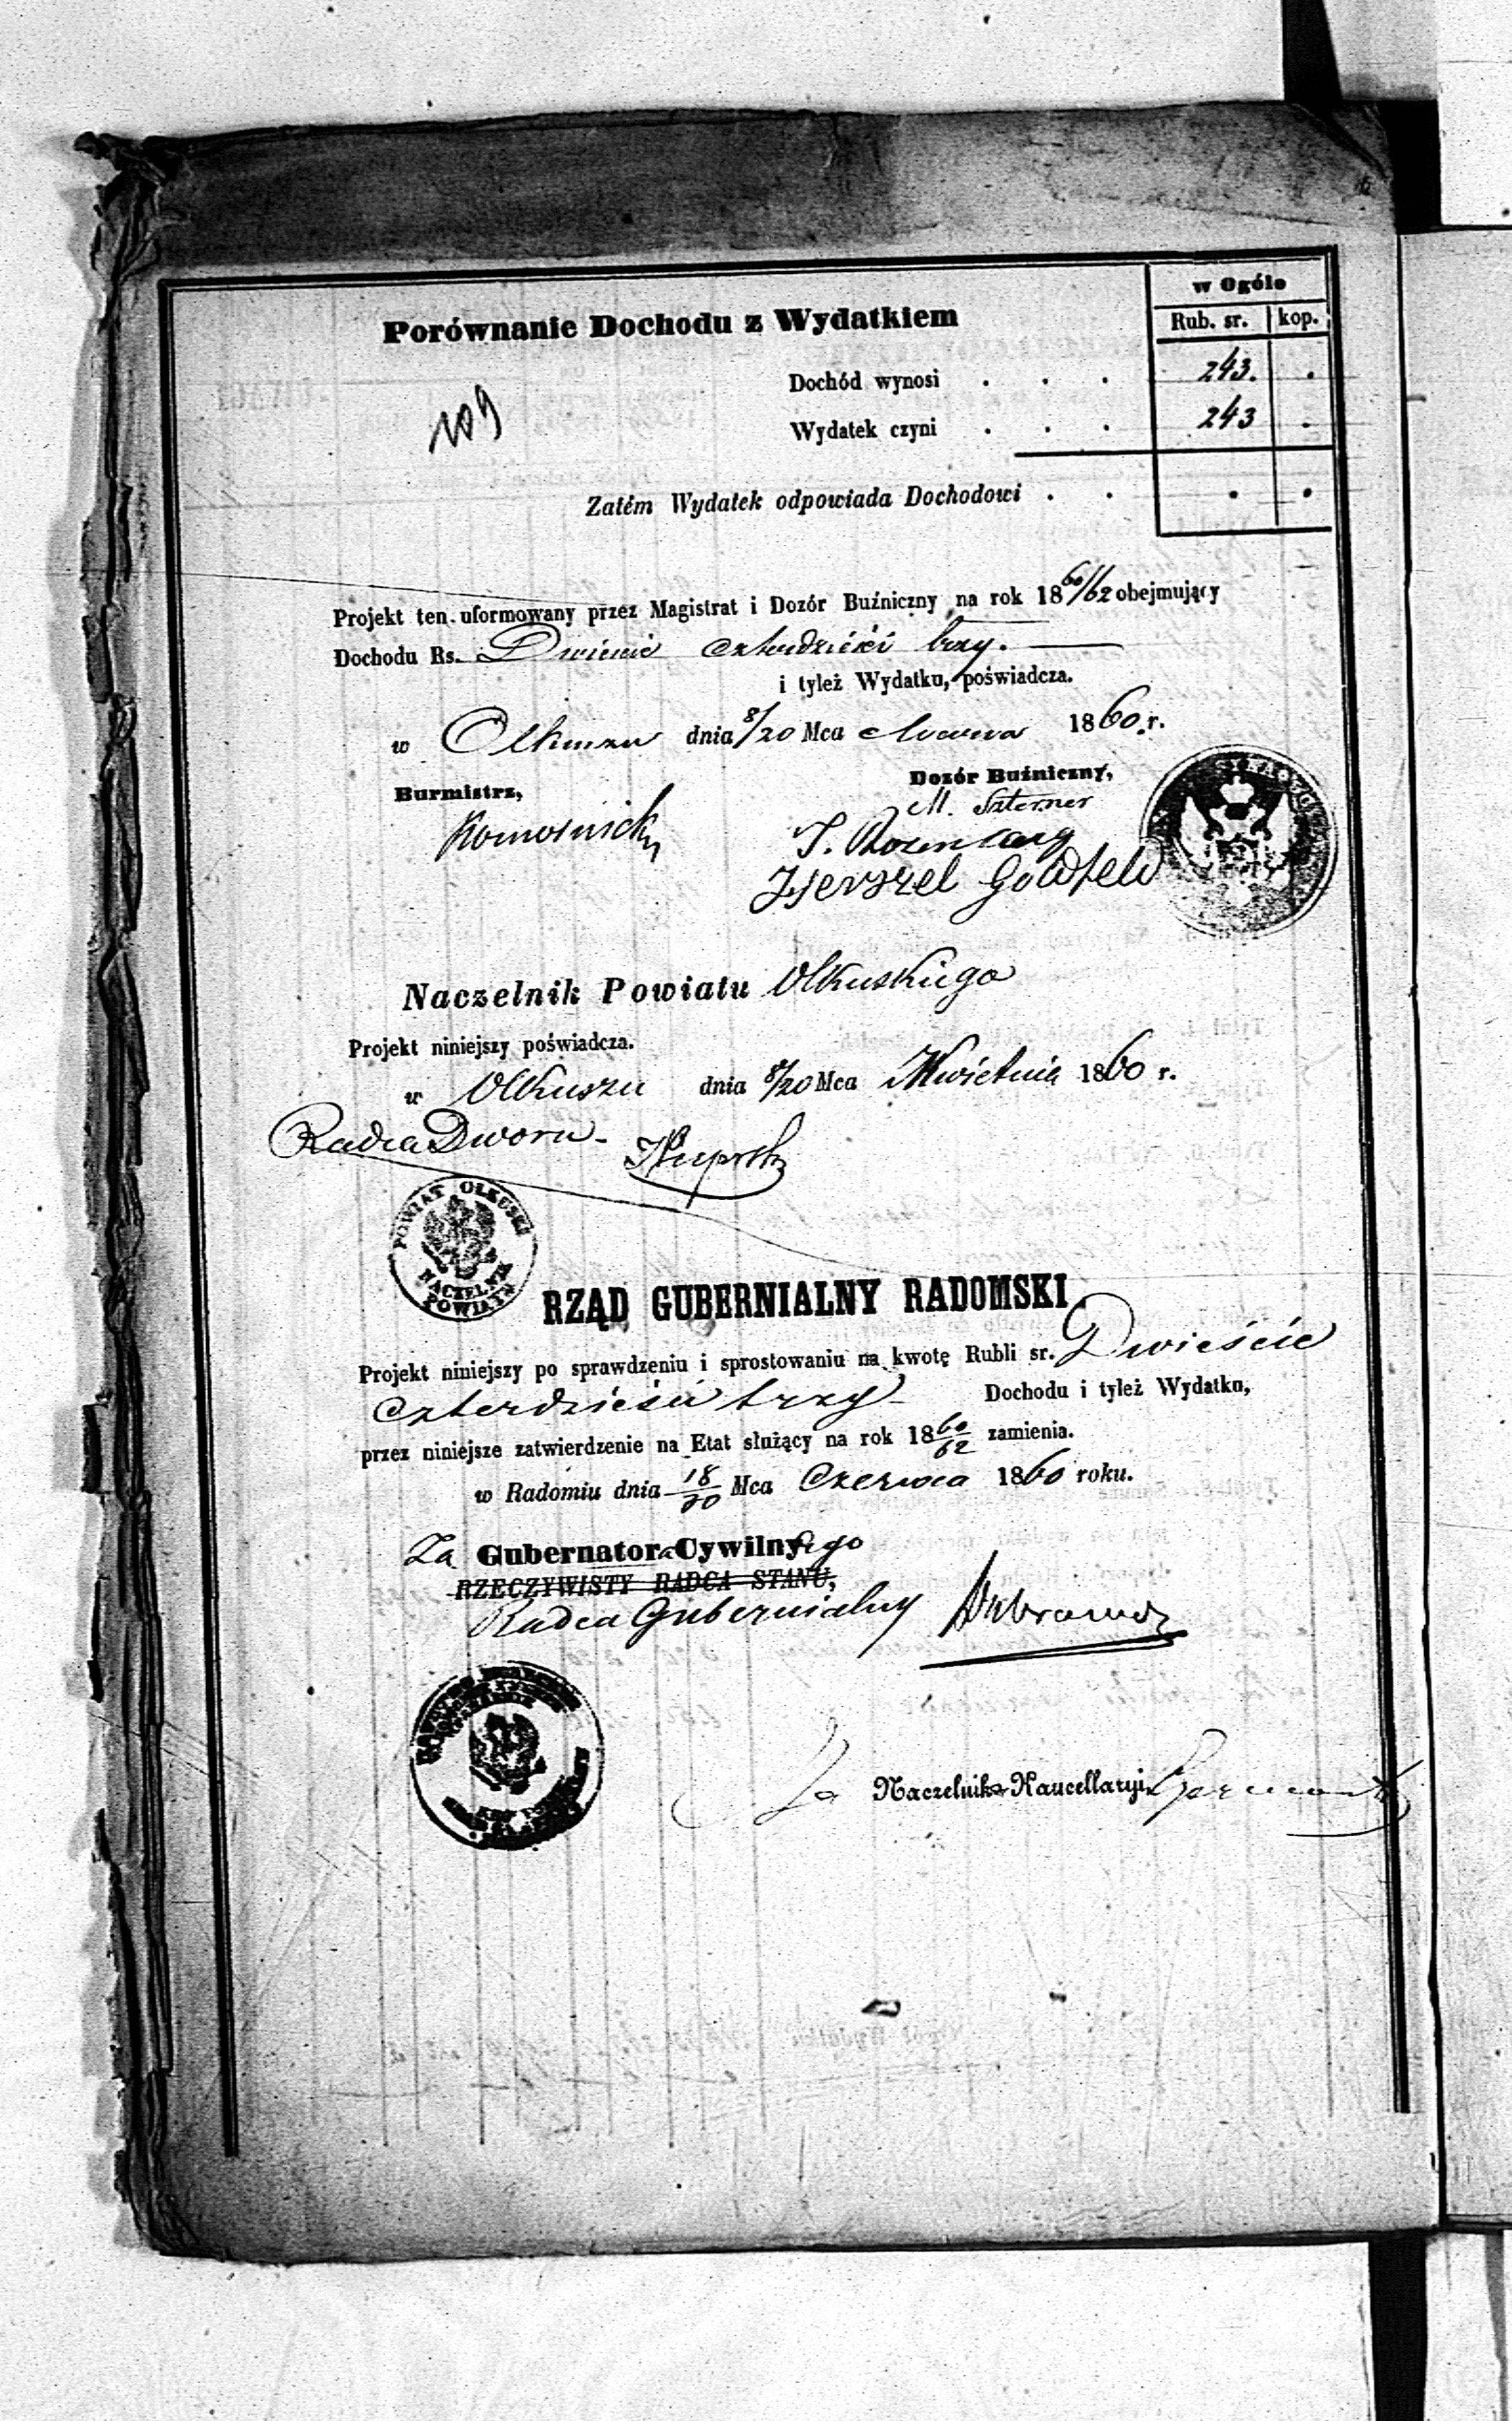 w Ogóle
Porównanie Dochodu z Wydatkiem
Rub. sr. kop.
Dochód wynosi . . . 243. .
109
Wydatek czyni . . . 243 .
Zatém Wydatek odpowiada Dochodowi . . . .
Projekt ten uformowany przez Magistrat i Dozór Bużniczny na rok 1860/62 obejmujący
Dochodu Rs. Dwieście czterdzieści trzy.
i tyleż Wydatku, poświadcza.
w Olkuszu dnia 8/20 Mca Marca 1860 r.
Burmistrz,
Dozór Bużniczny,
M. Szterner
Herszel Goldfeld
Naczelnik Powiatu Olkuskiego
Projekt niniejszy poświadcza.
w Olkuszu dnia 8/20 Mca Kwietnia 1860 r.
Radca Dworu
POWIAT OLKUSKI
NACZELNIK
POWIATU
RZĄD GUBERNIALNY RADOMSKI
Projekt niniejszy po sprawdzeniu i sprostowaniu na kwotę Rubli sr. Dwieście
czterdzieści trzy Dochodu i tyleż Wydatku,
przez niniejsze zatwierdzenie na Etat służący na rok 1860/62 zamienia.
w Radomiu dnia 18/30 Mca Czerwca 1860 roku.
Za Gubernatora Cywilnego
RZECZYWISTY RADCA STANU,
Radca Gubernialny
Za Naczelnika Kancellaryi